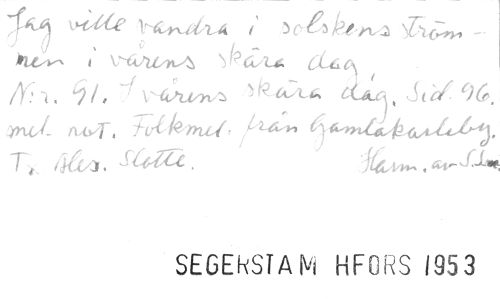 Jag ville vandra i solskens ström-
men i vårens skära dag
N:r. 91. I vårens skära dag. Sid. 96.
mel. not. Folkmel. från Gamlakarleby.
T. Alex. Slotte. Harm. av
SEGERSTAM HFORS 1953